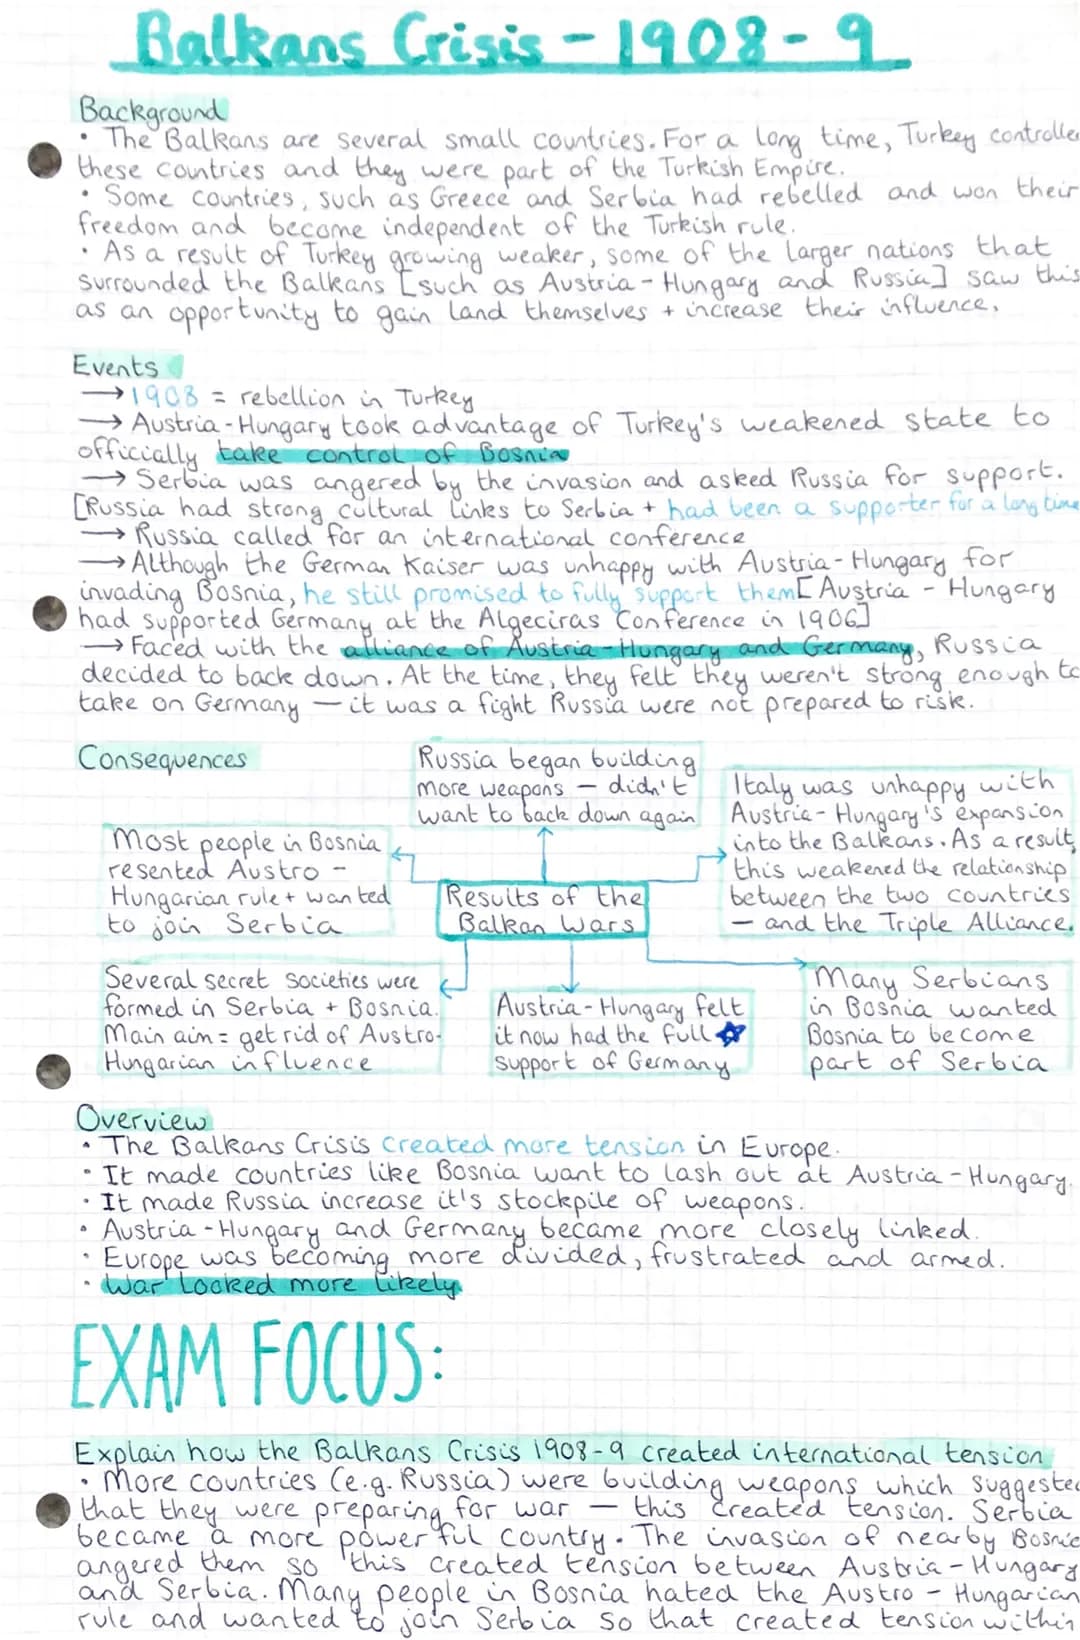 Balkans Crisis - 1908-9
Background
• The Balkans are several small countries. For a long time, Turkey controlle
these countries and they were part of the Turkish Empire.
• Some countries, such as Greece and Serbia had rebelled and won their
freedom and become independent of the Turkish rule.
• As a result of Turkey growing weaker, some of the larger nations that
surrounded the Balkans [such as Austria-Hungary and Russia] saw this
as an opportunity to gain land themselves + increase their influence.
Events
→ 1908 = rebellion in Turkey
→ Austria-Hungary took advantage of Turkey's weakened state to
officially take control of Bosnia
→ Serbia was angered by the invasion and asked Russia for support.
[Russia had strong cultural links to Serbia + had been a supporter for a long time
→ Russia called for an international conference
→ Although the German Kaiser was unhappy with Austria-Hungary for
invading Bosnia, he still promised to fully support them [Austria - Hungary
had supported Germany at the Algeciras Conference in 1906]
→ Faced with the alliance of Austria-Hungary and Germany, Russia
decided to back down. At the time, they felt they weren't strong enough to
take on Germany — it was a fight Russia were not prepared to risk.
Consequences
Russia began building
more weapons — didn't
want to back down again
Most people in Bosnia
resented Austro -
Hungarian rule + wanted
to join Serbia
Italy was unhappy with
Austria-Hungary's expansion
into the Balkans. As a result,
this weakened the relationship
between the two countries
— and the Triple Alliance.
Results of the
Balkan Wars
Several secret societies were
formed in Serbia + Bosnia.
Main aim = get rid of Austro-
Hungarian influence
Austria-Hungary felt
it now had the full
support of Germany
Many Serbians
in Bosnia wanted
Bosnia to become
part of Serbia
Overview
• The Balkans Crisis created more tension in Europe.
• It made countries like Bosnia want to lash out at Austria-Hungary.
• It made Russia increase it's stockpile of weapons.
• Austria-Hungary and Germany became more closely linked.
• Europe was becoming more divided, frustrated and armed.
• War looked more likely.
EXAM FOCUS:
Explain how the Balkans Crisis 1908-9 created international tension
• More countries (e.g. Russia) were building weapons which suggeste
that they were preparing for war — this created tension. Serbia
became a more powerful country. The invasion of nearby Bosnia
angered them so this created tension between Austria-Hungary
and Serbia. Many people in Bosnia hated the Austro - Hungarian
rule and wanted to join Serbia so that created tension within